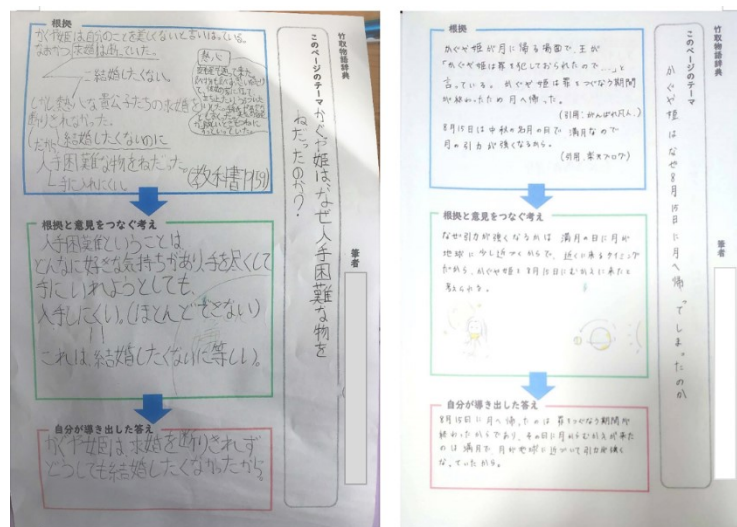 竹取物語辞典
このページのテーマ
かぐや姫は、なぜ入手困難な物を
ねだったのか?
筆者
根拠
かぐや姫は自分のことを美しくないと言いはっている。
なおかつ求婚は断っていた。
=結婚したくない。
熱心
しかし熱心な貴公子たちの求婚を
断りきれなかった。
だから結婚したくないのに
入手困難な物をねだった。
手に入れにくい。
(教科書P159)
根拠と意見をつなぐ考え
入手困難ということは、
どんなに好きな気持ちがあり、手を尽くして
手にいれようとしても、
入手しにくい。(ほとんどできない)
これは結婚したくないに等しい。
自分が導き出した答え
かぐや姫は求婚を断りきれず
どうしても結婚したくなかったから。
竹取物語辞典
このページのテーマ
かぐや姫はなぜ8月15日に月へ帰ってしまったのか
筆者
根拠
かぐや姫が月に帰る場面で、王が
「かぐや姫は罪を犯しておられたので…」と
言っている。かぐや姫は罪をつぐなう期間
が終わったため月へ帰った。
8月15日は中秋の名月の日で満月なので
月の引力が強くなるから。
根拠と意見をつなぐ考え
なぜ引力が強くなるかは満月の日に月が
地球に少し近づくからで、近くに来るタイミング
だから、かぐや姫を8月15日にむかえに来たと
考えられる。
自分が導き出した答え
8月15日に月へ帰ったのは罪をつぐなう期間が
終わったからであり、その日に月からむかえが来た
のは満月で月が地球に近づいて引力が強く
なっていたから。